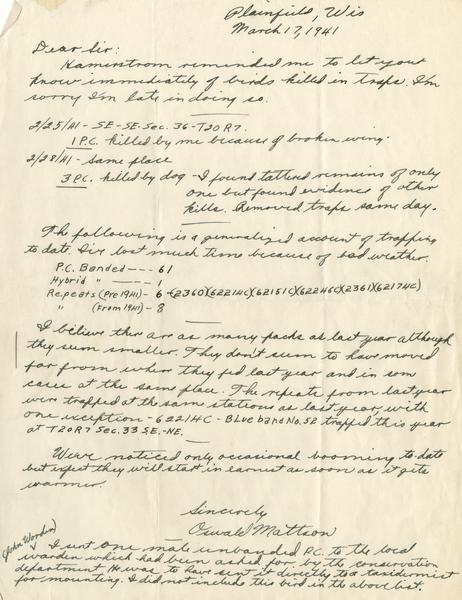 Plainfield, Wis
March 17, 1941
Dear Sir:
Hamerstrom reminded me to let you
know immediately of birds killed in traps. I'm
sorry I'm late in doing so.
2/25/41 - SE-SE. Sec. 36 - T20 R7.
1 P.C. killed by me because of broken wing.
2/28/41 - same place
3 P.C. killed by dog - I found tattered remains of only
one but found evidence of other
kills. Removed traps same day.
The following is a generalized account of trapping
to date. I've lost much time because of bad weather.
P.C. Banded --- 61
Hybrid " ---- 1
Repeats (Pre 1941) - 6 - (2360)(62214C)(62151C)(62246C)(2361)(62174C)
" (From 1941) - 8
I believe there are as many packs as last year although
they seem smaller. They don't seem to have moved
far from where they fed last year and in som
cases at the same place. The repeats from last year
were trapped at the same stations as last year, with
one exception - 62214C - Blue band No. 52 trapped this year
at T20 R7 Sec. 33 SE.-NE.
We've noticed only occasional booming to-date
but expect they will start in earnest as soon as it gets
warmer.
Sincerely
Oswald Mattson
(John Worden)
I sent one male unbanded P.C. to the local
warden which had been asked for by the conservation
department. He was to have sent it directly to a taxidermist
for mounting. I did not include this bird in the above list.